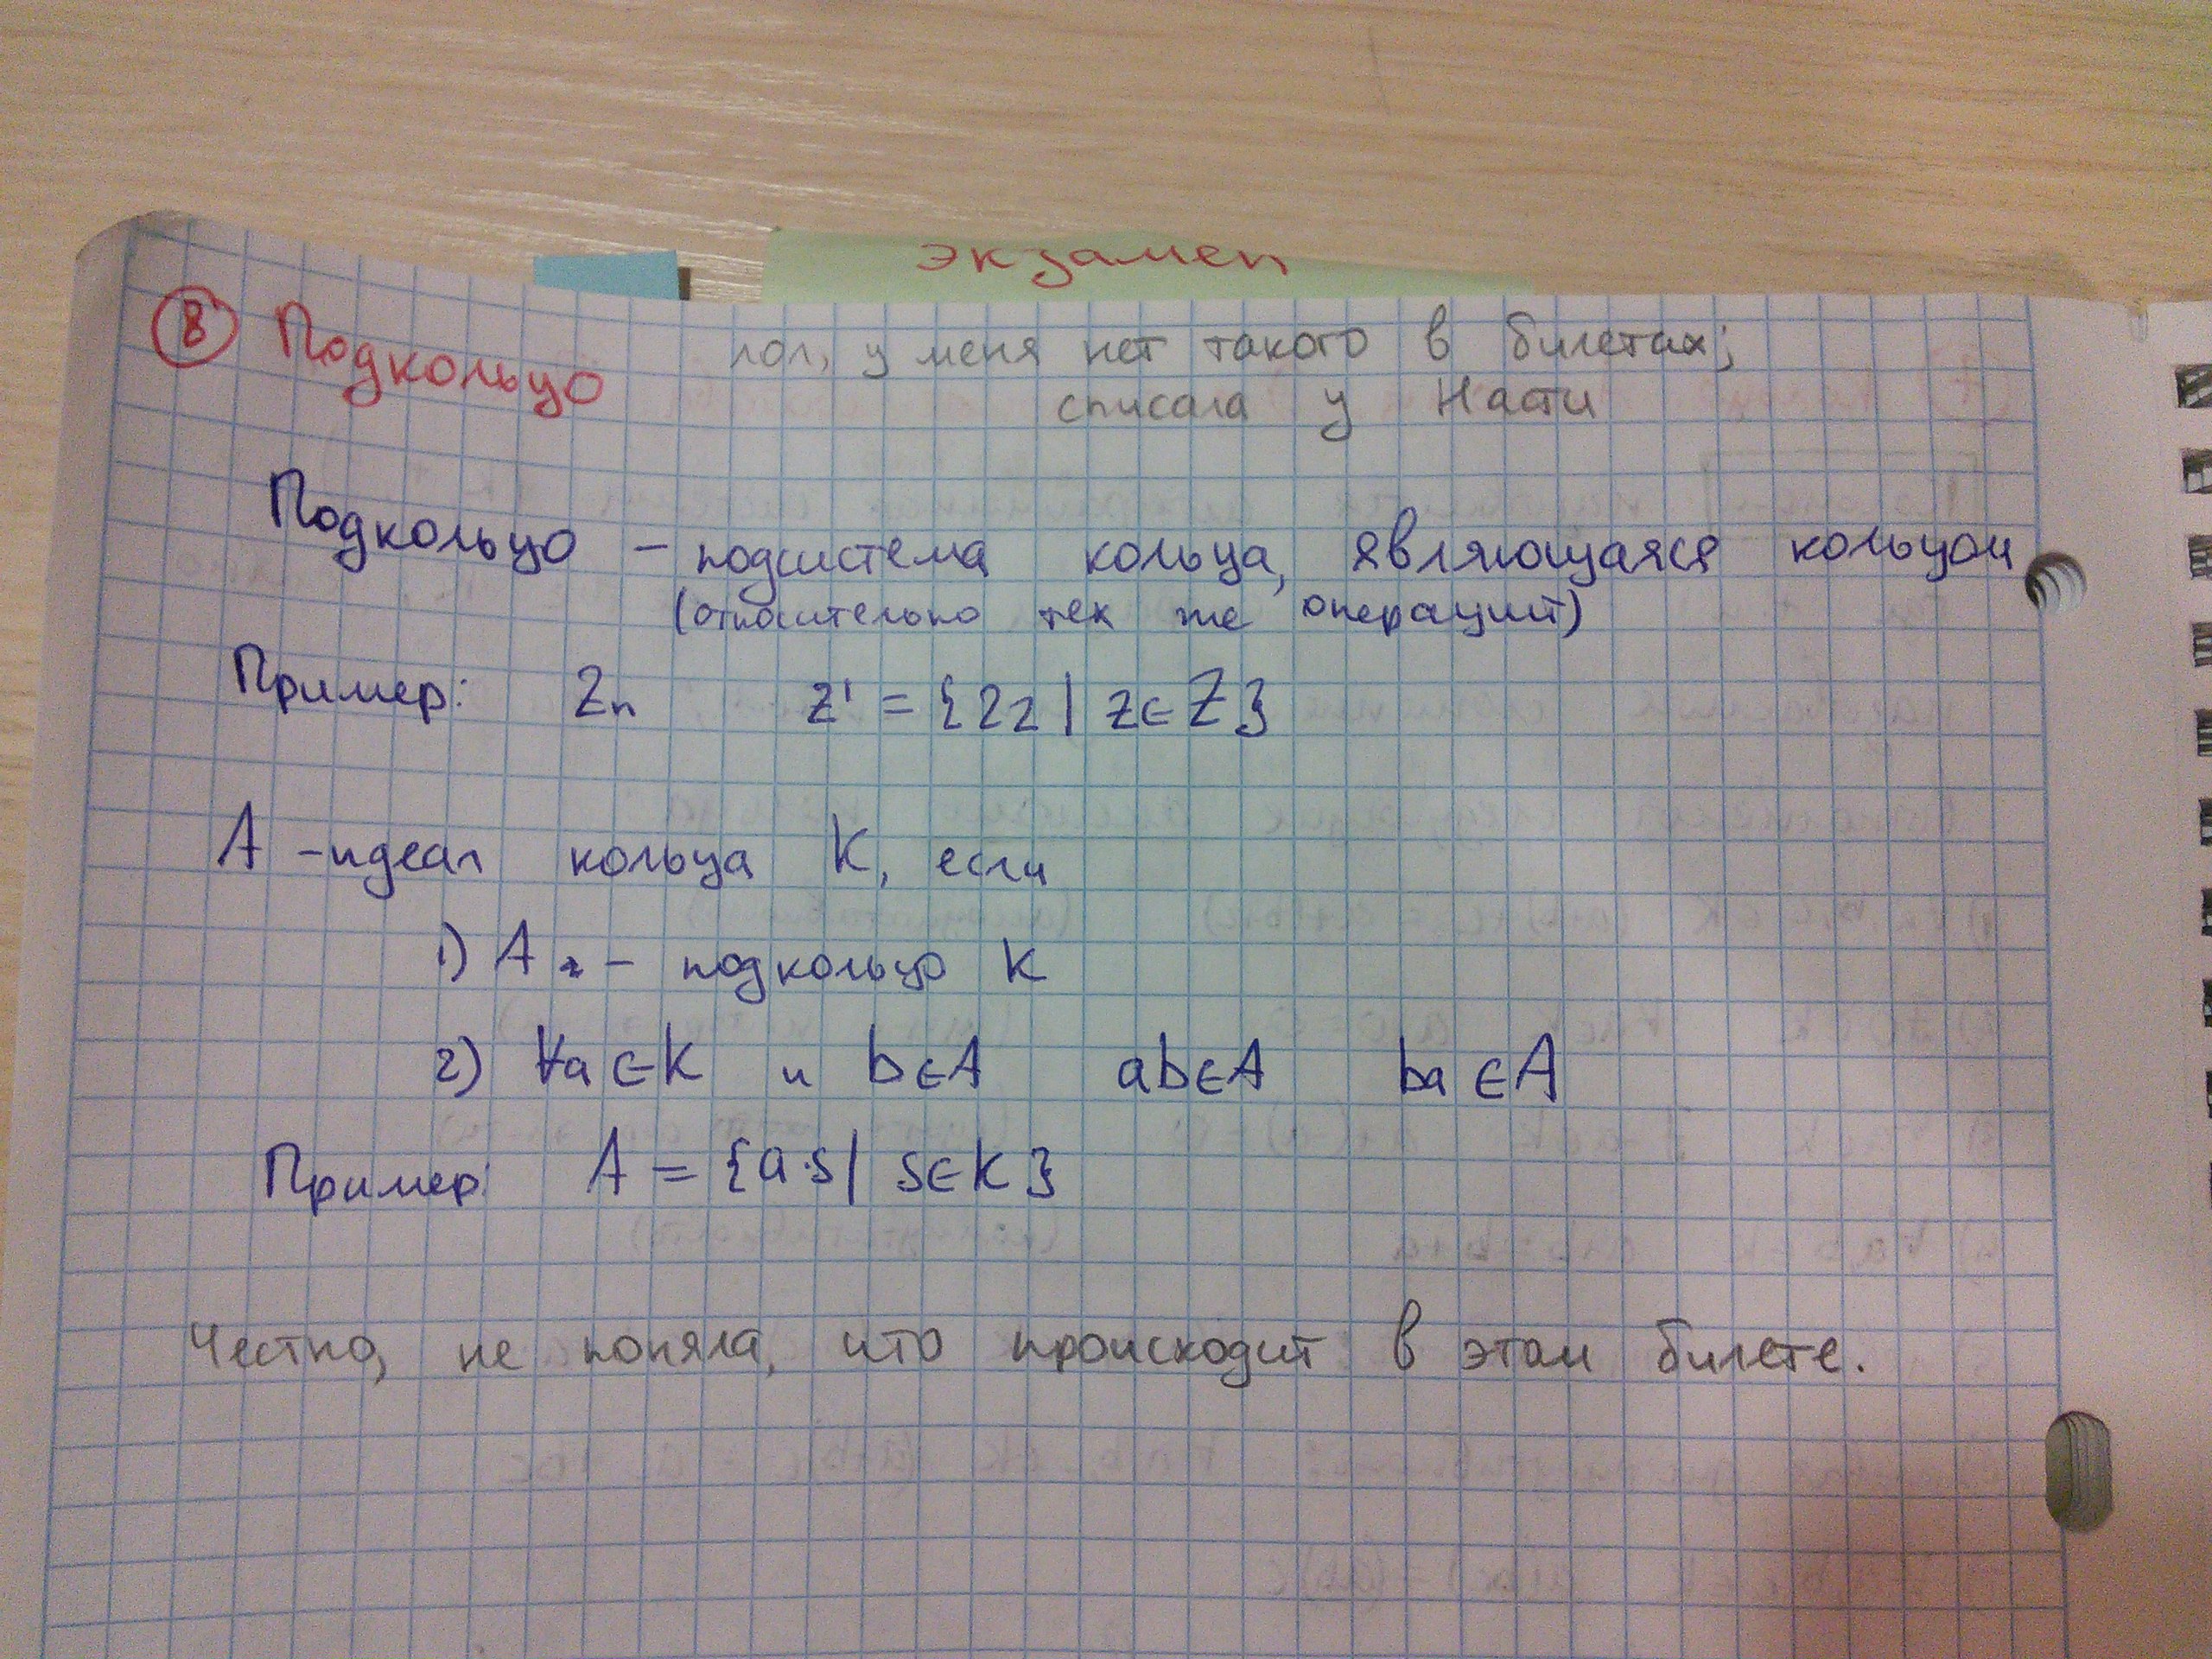 экзамен
8 Подкольцо
лол, у меня нет такого в билетах;
списала у Насти
Подкольцо – подсистема кольца, являющаяся кольцом
(относительно тех же операций)
Пример: Zn z' = {2z | z∈Z}
A – идеал кольца K, если
1) A – подкольцо K
2) ∀a∈K и b∈A ab∈A ba∈A
Пример: A = {a·s | s∈K}
Честно, не поняла, что происходит в этом билете.